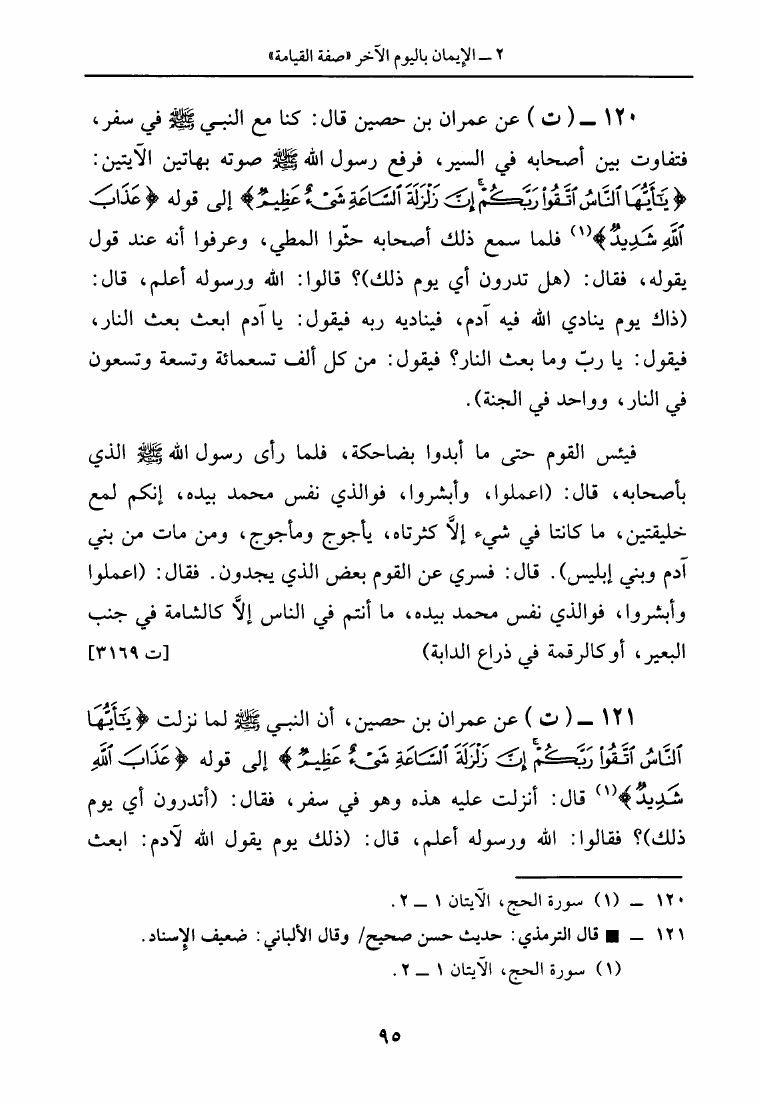 ٢ ــ الإيمان باليوم الآخر «صفة القيامة»
١٢٠ ــ (ت) عن عمران بن حصين قال: كنا مع النبي ﷺ في سفر،
فتفاوت بين أصحابه في السير، فرفع رسول الله ﷺ صوته بهاتين الآيتين:
﴿يَٰٓأَيُّهَا ٱلنَّاسُ ٱتَّقُوا۟ رَبَّكُمْ ۚ إِنَّ زَلْزَلَةَ ٱلسَّاعَةِ شَىْءٌ عَظِيمٌ﴾ إلى قوله ﴿عَذَابَ
ٱللَّهِ شَدِيدٌ﴾(١) فلما سمع ذلك أصحابه حثّوا المطي، وعرفوا أنه عند قول
يقوله، فقال: (هل تدرون أي يوم ذلك)؟ قالوا: الله ورسوله أعلم، قال:
(ذاك يوم ينادي الله فيه آدم، فيناديه ربه فيقول: يا آدم ابعث بعث النار،
فيقول: يا ربّ وما بعث النار؟ فيقول: من كل ألف تسعمائة وتسعة وتسعون
في النار، وواحد في الجنة).
فيئس القوم حتى ما أبدوا بضاحكة، فلما رأى رسول الله ﷺ الذي
بأصحابه، قال: (اعملوا، وأبشروا، فوالذي نفس محمد بيده، إنكم لمع
خليقتين، ما كانتا في شيء إلَّا كثرتاه، يأجوج ومأجوج، ومن مات من بني
آدم وبني إبليس). قال: فسري عن القوم بعض الذي يجدون. فقال: (اعملوا
وأبشروا، فوالذي نفس محمد بيده، ما أنتم في الناس إلَّا كالشامة في جنب
البعير، أو كالرقمة في ذراع الدابة) [ت ٣١٦٩]
١٢١ ــ (ت) عن عمران بن حصين، أن النبي ﷺ لما نزلت ﴿يَٰٓأَيُّهَا
ٱلنَّاسُ ٱتَّقُوا۟ رَبَّكُمْ ۚ إِنَّ زَلْزَلَةَ ٱلسَّاعَةِ شَىْءٌ عَظِيمٌ﴾ إلى قوله ﴿عَذَابَ ٱللَّهِ
شَدِيدٌ﴾(١) قال: أنزلت عليه هذه وهو في سفر، فقال: (أتدرون أي يوم
ذلك)؟ فقالوا: الله ورسوله أعلم، قال: (ذلك يوم يقول الله لآدم: ابعث
١٢٠ ــ (١) سورة الحج، الآيتان ١ ــ ٢.
١٢١ ــ ■ قال الترمذي: حديث حسن صحيح/ وقال الألباني: ضعيف الإسناد.
(١) سورة الحج، الآيتان ١ ــ ٢.
٩٥